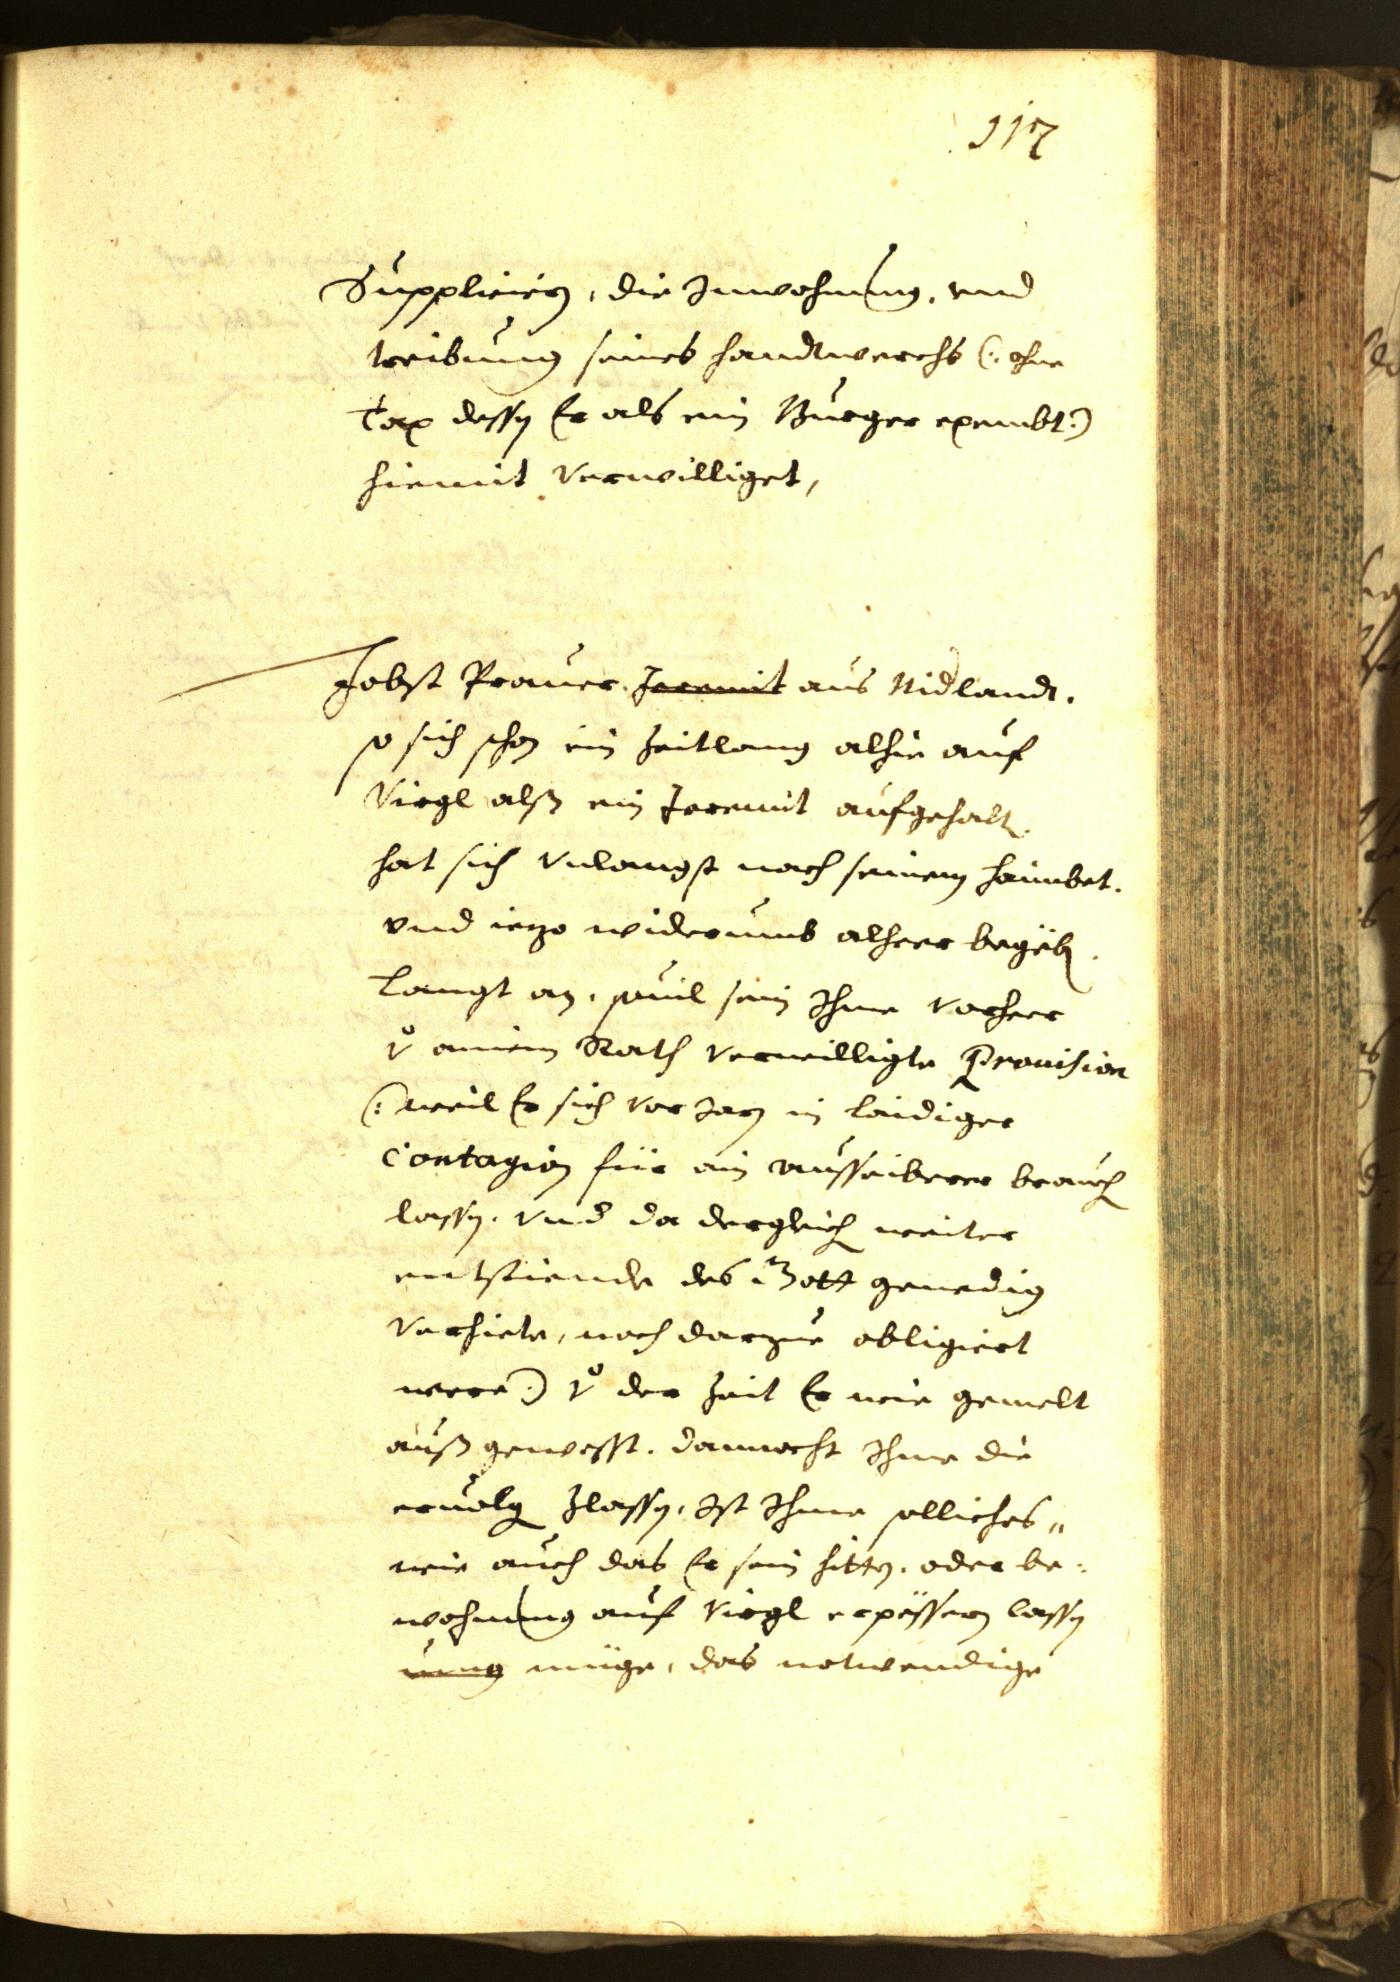 117
Supplicien, die Inwohnung, vnd
treibung seines handtwerchs (: ohne
Tax dessen Er als ein Burger exembt :)
hiemit verwilliget,
Jobst Prauer Jeremit aus Nidlandt.
so sich schon ein Zeitlang alhie auf
Virgl alß ein Jeremit aufgehalten.
hat sich vnlangst nach seinem haimbet.
vnd iezo widerumb alheer begeben.
langt an, souil sein Ihme vorheer
v̊ ainem Rath verwilligte Prouision
(: weil Er sich vor Jarn in laidiger
Contagion für ein aussaiberer brauchen
lassen. vnd da dergleichen weiter
entstiende des Gott genedig
verhiete, noch darzue obligiert
were :) v̊ der Zeit Er wie gemelt
auß gewesst. dannocht Ihme die
eruolgen zlassen, Ist Ihme solliches,,
wie auch das Er sein hitten, oder be-
wohnung auf Virgl erpössern lassen
müge, das notwendige